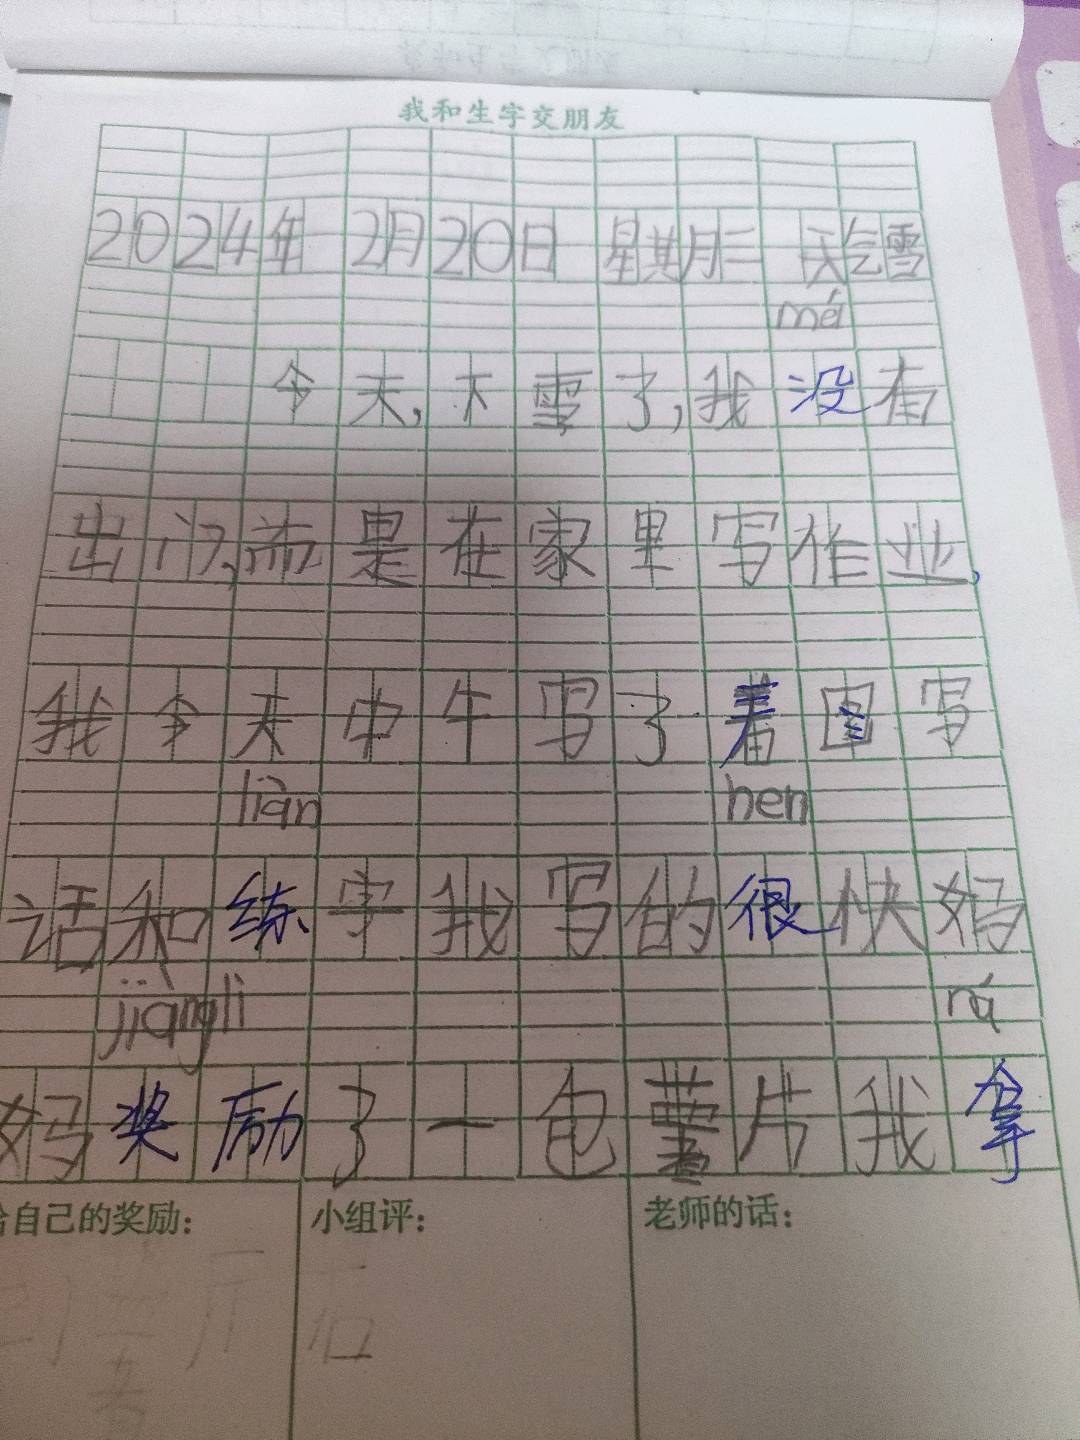 我和生字交朋友
2024年 2月20日 星其月二 天气雪
méi
今天,下雪了,我没有
出门,而是在家里写作业,
我今天中午写了着图写
liàn hen
话和练字我写的很快妈
jiàngli ná
妈奖励了一包薯片我拿
给自己的奖励: 小组评: 老师的话: